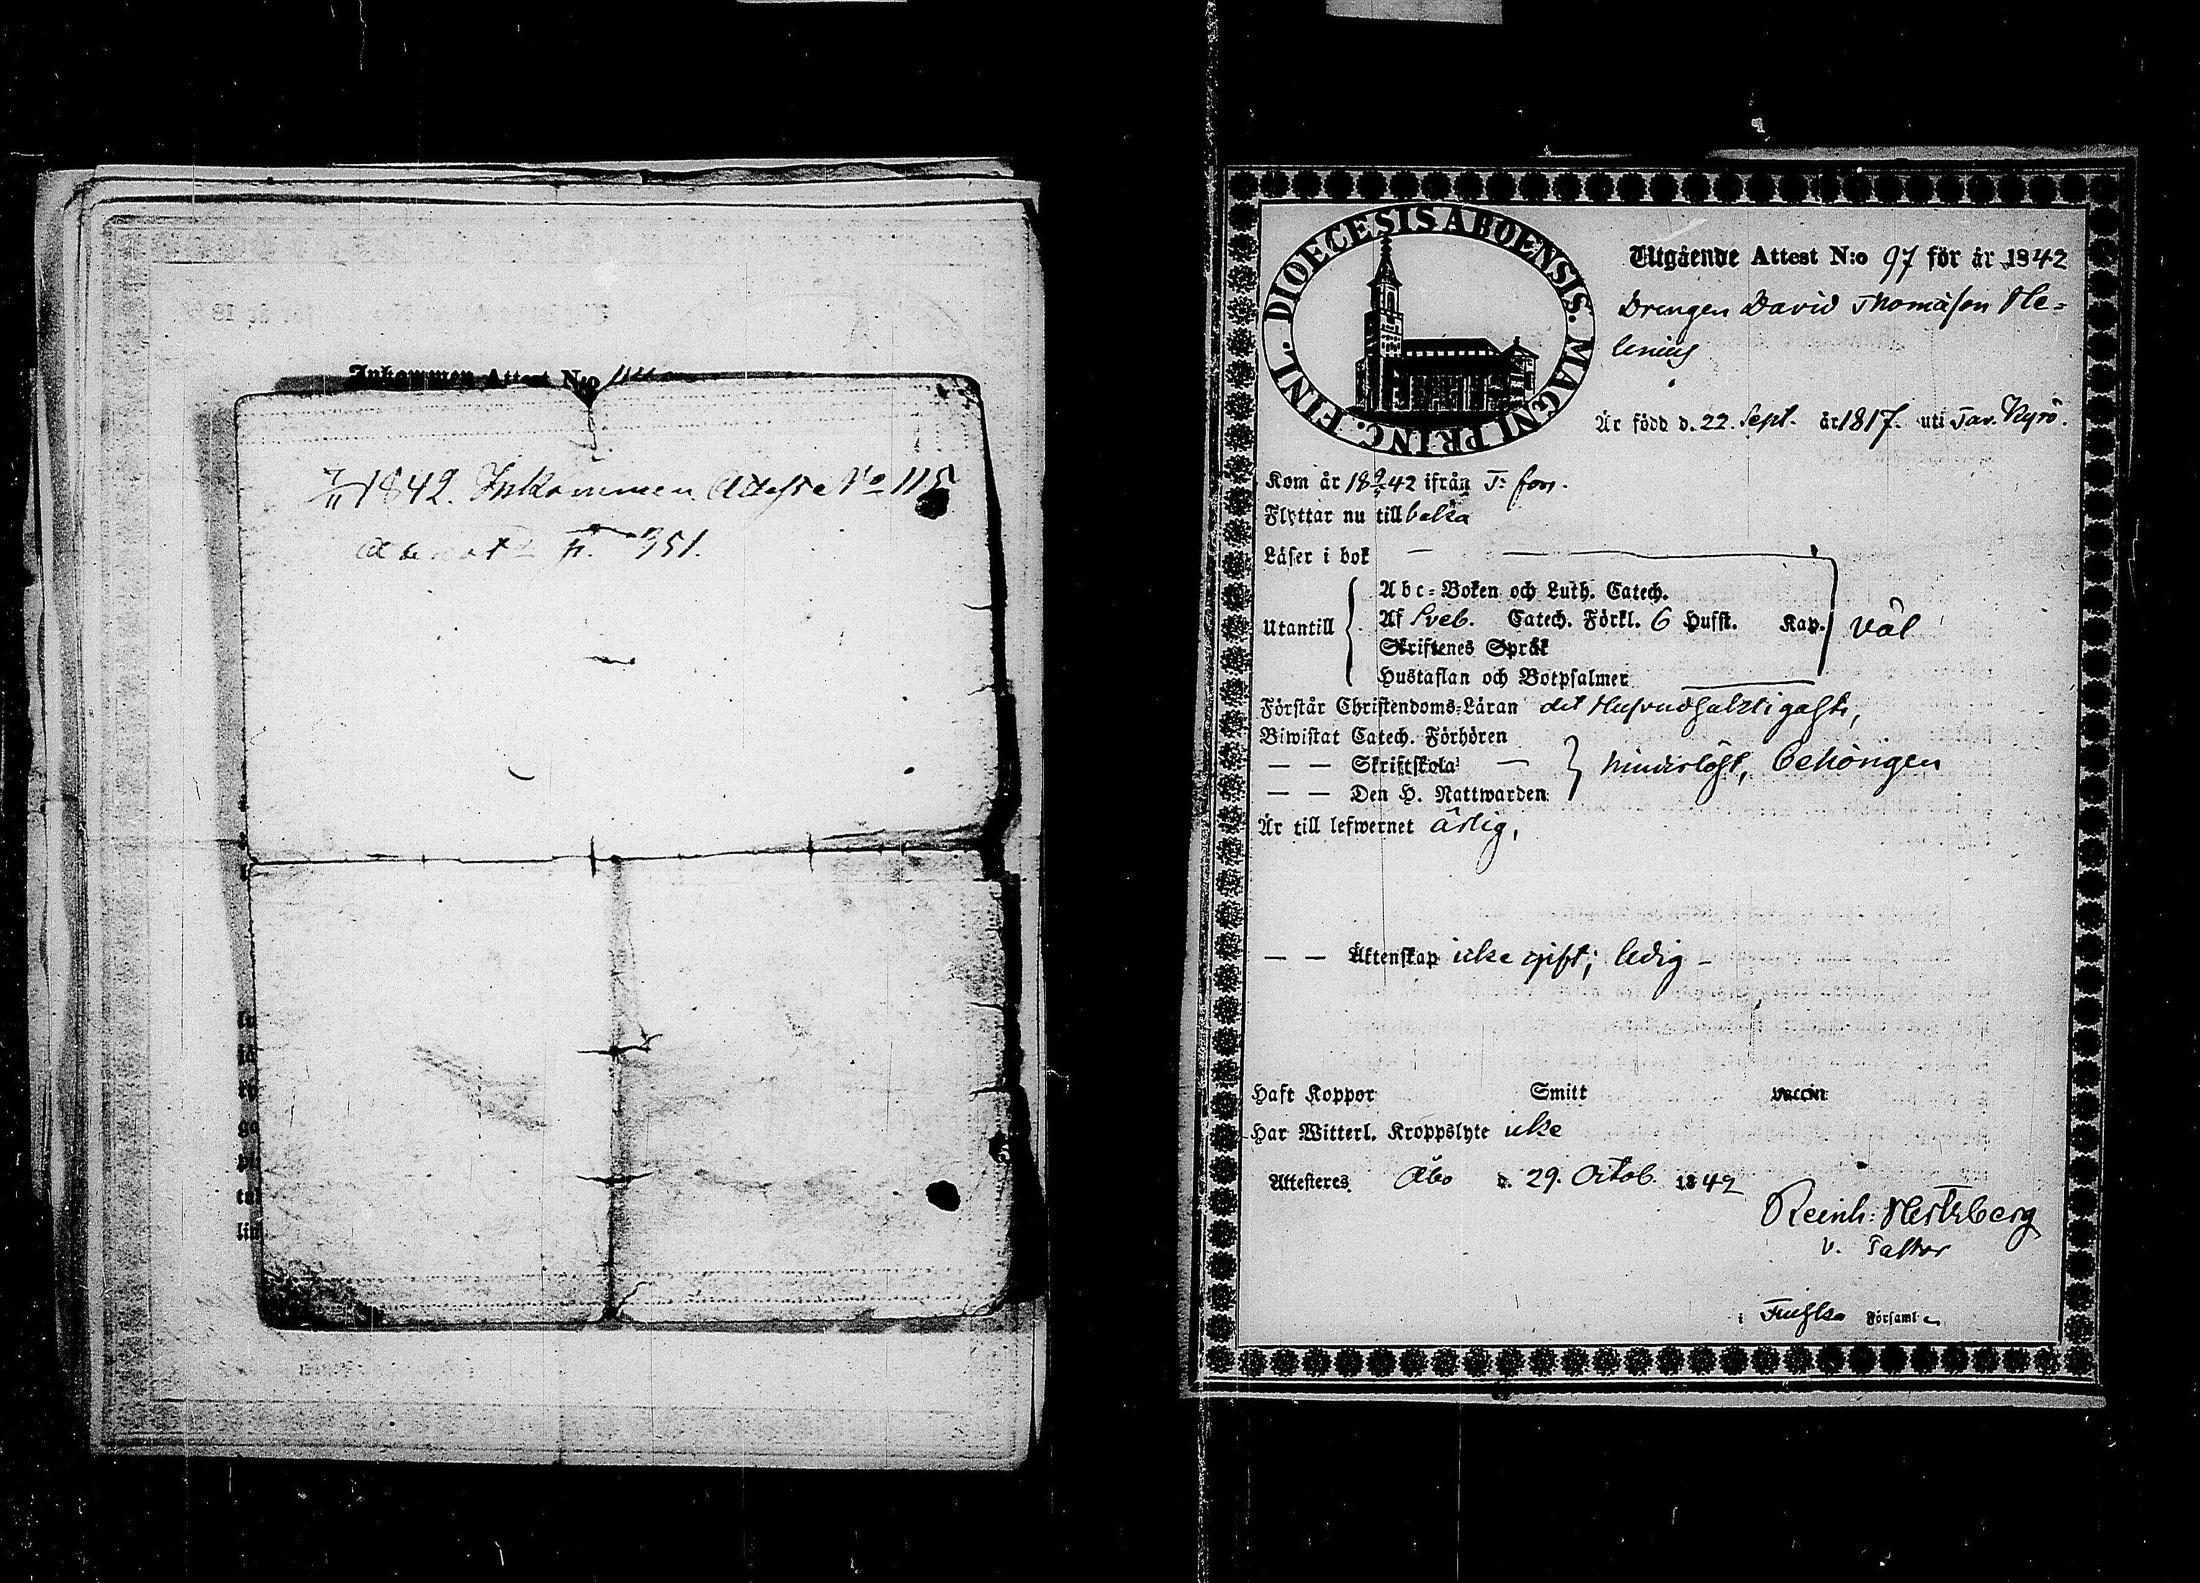 Inkommen Attest N:o
7/11 1842. Inkommen Attest No 115
p. 351.
DIOECESIS ABOENSIS. MAGNI PRINC. FINL.
Utgående Attest N:o 97 för år 1842
Drengen David Thomasson He=
lenius
Är född d. 22. Sept. år 1817. uti Tav. Kyrö.
Kom år 18 42 ifrån T: fors.
Flyttar nu till baka
Läser i bok —
Utantill
Abc=Boken och Luth. Catech.
Af Sveb. Catech. Förkl. 6 Hufst. Kap.
Skriftenes Språk
Hustaflan och Botpsalmer
väl
Förstår Christendoms=Läran det Hufvudsakligaste,
Biwistat Catech. Förhören
— — Skriftskola —
— — Den H. Nattwarden
hinderlöst, behörigen
Är till lefwernet ärlig,
— — Äktenskap icke gift; ledig –
Haft Koppor Smitt vaccin
Har Witterl. Kroppslyte icke
Attesteres Åbo d. 29. Octob. 1842
Reinh: Hertzberg
v. Pastor
i Finska Församl